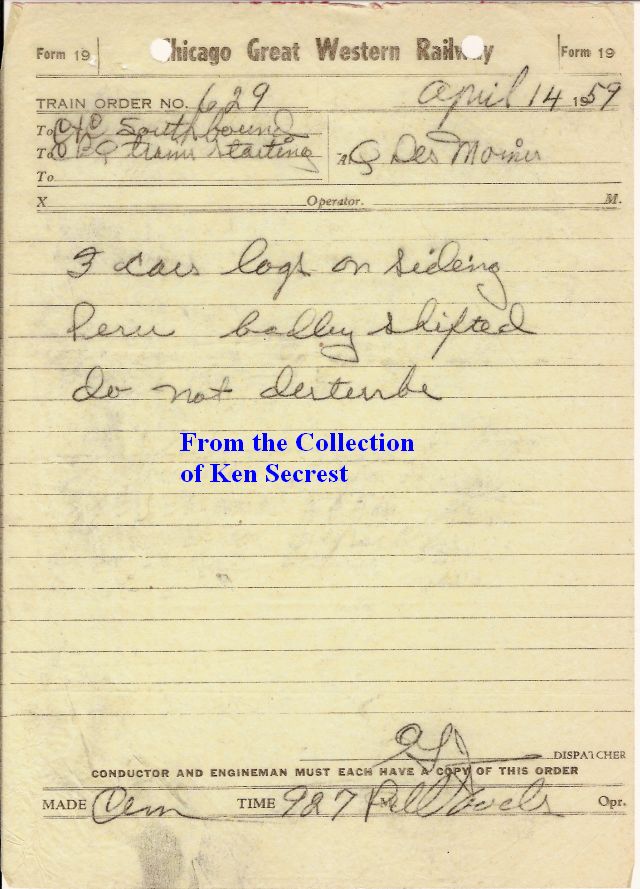 Form 19 Chicago Great Western Railway Form 19
TRAIN ORDER NO. 629 April 14 1959
To C&E Southbound
To trains starting At Des Moines
To
X Operator. M.
cars logs on sideing
Peru badley shifted
do not desturbe
From the Collection
of Ken Secrest
DISPATCHER
CONDUCTOR AND ENGINEMAN MUST EACH HAVE A COPY OF THIS ORDER
MADE Com TIME 927 M Opr.